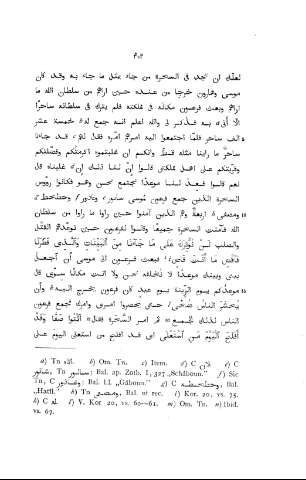 لعلّه ان نجد فى السحرة من جاء بمثل ما جاء به وقد كان
موسى وهارون خرجا من عنده حين اراهم من سلطان الله ما
اراهم وبعث فرعون مكانه فى مملكته فلم يترك فى سلطانه ساحرًا
الّا أُتى به فذكر لى والله اعلم انه جمع له خمسة عشر
الف ساحر فلمّا اجتمعوا اليه امرهم امره فقال لهم قد جاءنا
ساحر ما راينا مثله قطّ وانكم ان غلبتموه اكرمتكم وفضّلتكم
وقرّبتكم على اهل مملكتى قالوا انّ لنا ذلك ان غلبناه قال
نعم قالوا فعد لنا موعدًا نجتمع نحن وهو فكانوا رؤوس
السحرة الذين جمع فرعون لموسى
ومصفى اربعة وهم الذين آمنوا حين راوا ما راوا من سلطان
الله فآمنت السحرة جميعًا وقالوا لفرعون حين توعّدهم القتل
والصلب لَنْ نُؤْثِرَكَ عَلَى مَا جَاءَنَا مِنَ ٱلْبَيِّنَاتِ وَٱلَّذِى فَطَرَنَا
فَٱقْضِ مَا أَنْتَ قَاضٍ فبعث فرعون الى موسى أن اجعل
بيننا وبينك موعدًا لا نخلفه نحن ولا انت مكانًا سوى قال
موعدكم يوم الزينة يوم عيد كان فرعون يخرج اليه وأن
يُحْشَرَ النَّاسُ ضُحًى حتى يحضروا امرى وامرك فجمع فرعون
الناس لذلك الجمع ثم امر السحرة فقال ٱئْتُوا صَفًّا وَقَدْ
أَفْلَحَ ٱلْيَوْمَ مَنِ ٱسْتَعْلَى اى قد افلح من استعلى اليوم على
a) Tn انه. b) Om. Tn. c) Item. d) C لان. e) C
Tn Bal. ap. Zotb. I, 327 „Schâboun." f) Sic
Tn, C Bal. l.l. „Gâboun." g) C Bal.
„Hatft." h) Tn Bal. ut rec. i) Kor. 20, vs. 75.
k) C له. l) V. Kor. 20, vs. 60—61. m) Om. Tn. n) Ibid.
vs. 67.